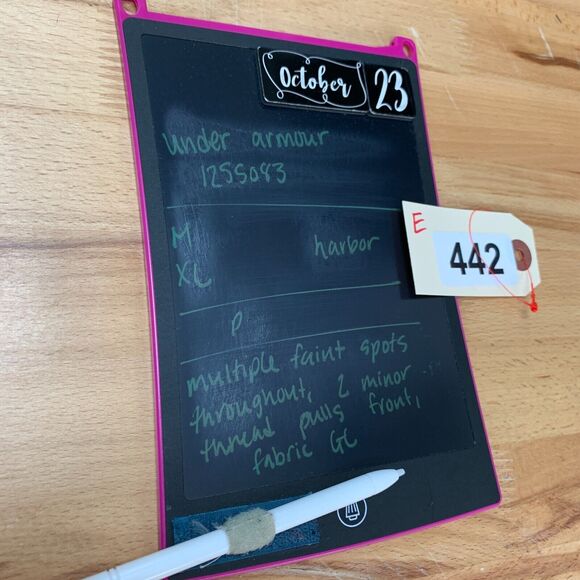 October 23
under armour
1255083
E
442
M harbor
XL
P
multiple faint spots
throughout, 2 minor
thread pulls front,
fabric GC